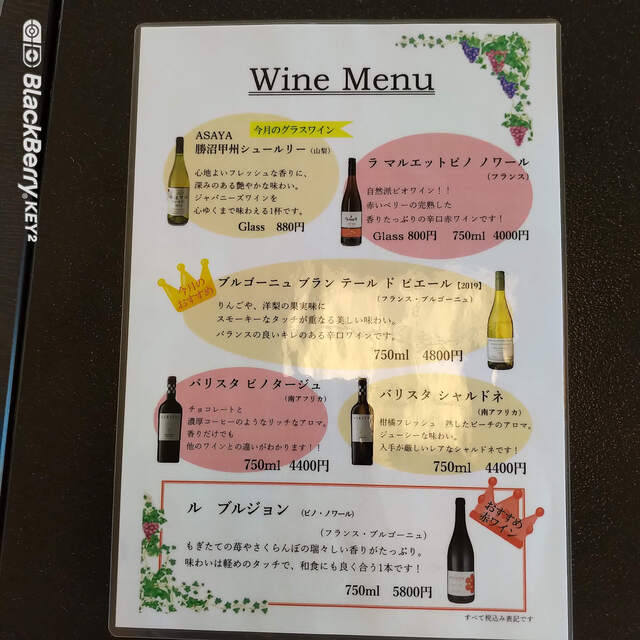 BlackBerry KEY2
Wine Menu
今月のグラスワイン
ASAYA
勝沼甲州シュールリー(山梨)
心地よいフレッシュな香りに、
深みのある艶やかな味わい。
ジャパニーズワインを
心ゆくまで味わえる1杯です。
Glass 880円
ラ マルエットピノ ノワール
(フランス)
自然派ビオワイン！！
赤いベリーの完熟した
香りたっぷりの辛口赤ワインです！
Glass 800円 750ml 4000円
今月の
おすすめ
ブルゴーニュ ブラン テール ド ピエール【2019】
(フランス・ブルゴーニュ)
りんごや、洋梨の果実味に
スモーキーなタッチが重なる美しい味わい。
バランスの良いキレのある辛口ワインです。
750ml 4800円
バリスタ ピノタージュ
(南アフリカ)
チョコレートと
濃厚コーヒーのようなリッチなアロマ。
香りだけでも
他のワインとの違いがわかります！！
750ml 4400円
バリスタ シャルドネ
(南アフリカ)
柑橘フレッシュ 熟したピーチのアロマ。
ジューシーな味わい。
入手が厳しいレアなシャルドネです！
750ml 4400円
おすすめ
赤ワイン
ル ブルジョン (ピノ・ノワール)
(フランス・ブルゴーニュ)
もぎたての苺やさくらんぼの瑞々しい香りがたっぷり。
味わいは軽めのタッチで、和食にも良く合う1本です！
750ml 5800円
すべて税込み表記です